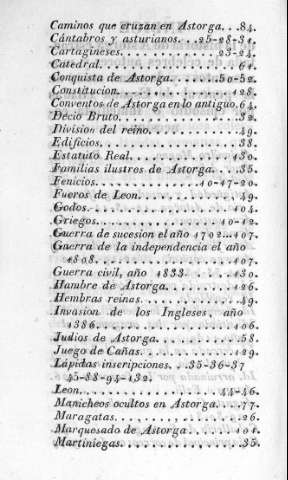 Caminos que cruzan en Astorga. .84.
Cántabros y asturianos. ..25-28-31.
Cartagineses. . . . . . . . . 23-24.
Catedral. . . . . . . . . . . . . 61.
Conquista de Astorga. . . . .50-52.
Constitucion. . . . . . . . . . 128.
Conventos de Astorga en lo antiguo. 64.
Décio Bruto. . . . . . . . . . . .32.
Division del reino. . . . . . . . .49.
Edificios. . . . . . . . . . . . . 38.
Estatuto Real. . . . . . . . . . 130.
Familias ilustros de Astorga. . .35.
Fenicios. . . . . . . . . . 10-17-20.
Fueros de Leon. . . . . . . . . . 49.
Godos. . . . . . . . . . . . . . 104.
Griegos. . . . . . . . . . . . 10-12.
Guerra de sucesion el año 1702..107.
Guerra de la independencia el año
1808. . . . . . . . . . . . . . .107.
Guerra civil, año 1833. . . . . .130.
Hambre de Astorga. . . . . . . .126.
Hembras reinas. . . . . . . . . . 49.
Invasion de los Ingleses, año
1386. . . . . . . . . . . . . . .106.
Judios de Astorga. . . . . . . . .58.
Juego de Cañas. . . . . . . . . .129.
Lápidas inscripciones. . .35-36-37
45-88-94-132.
Leon. . . . . . . . . . . . . .44-46.
Manicheos ocultos en Astorga. . .77.
Maragatas. . . . . . . . . . . . .26.
Marquesado de Astorga . . . . . 101.
Martiniegas. . . . . . . . . . . .35.